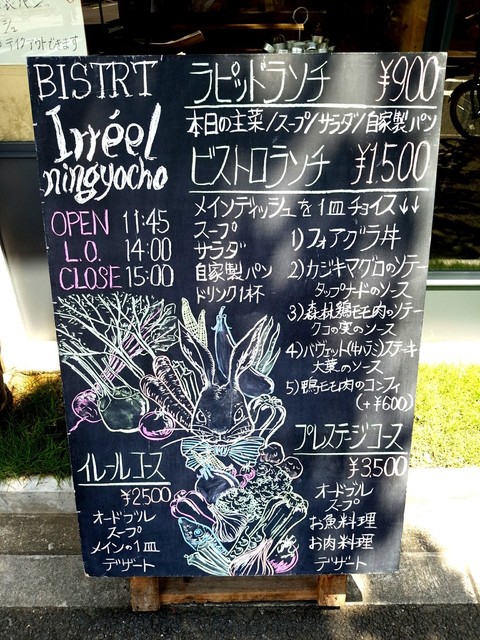 テイクアウトできます
BISTRT
Irréel
ningyocho
OPEN 11:45
L.O. 14:00
CLOSE 15:00
ラピッドランチ ¥900
本日の主菜/スープ/サラダ/自家製パン
ビストロランチ ¥1500
メインディッシュを1皿チョイス↓↓
スープ
サラダ
自家製パン
ドリンク1杯
1)フォアグラ丼
2)カジキマグロのソテー
タップナードのソース
3)森林鶏モモ肉のソテー
クコの実のソース
4)バヴェット(牛ハラミ)ステーキ
大葉のソース
5)鴨モモ肉のコンフィ
(+¥600)
イレールコース
¥2500
オードブル
スープ
メインの1皿
デザート
プレステージコース
¥3500
オードブル
スープ
お魚料理
お肉料理
デザート